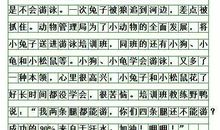 是不会游泳。一次兔子被狼追到河边，差点被
抓住。动物管理局为了小动物的全面发展，将
小兔子送进游泳培训班，同班的还有小狗、小
龟和小松鼠等。小狗、小龟学会游泳，又多了
一种本领，心里很高兴，小兔子和小松鼠花了
好长时间都没学会，很苦恼。培训班教练野鸭
说：“我两条腿都能游，你们四条腿还不能游？
成功的90％来自于汗水。加油！嘎嘎！”